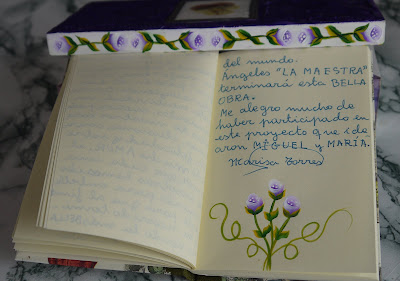 del mundo.
Ángeles "LA MAESTRA"
terminará esta BELLA
OBRA.
Me alegro mucho de
haber participado en
este proyecto que ide
aron MIGUEL y MARÍA.
Marisa Torres